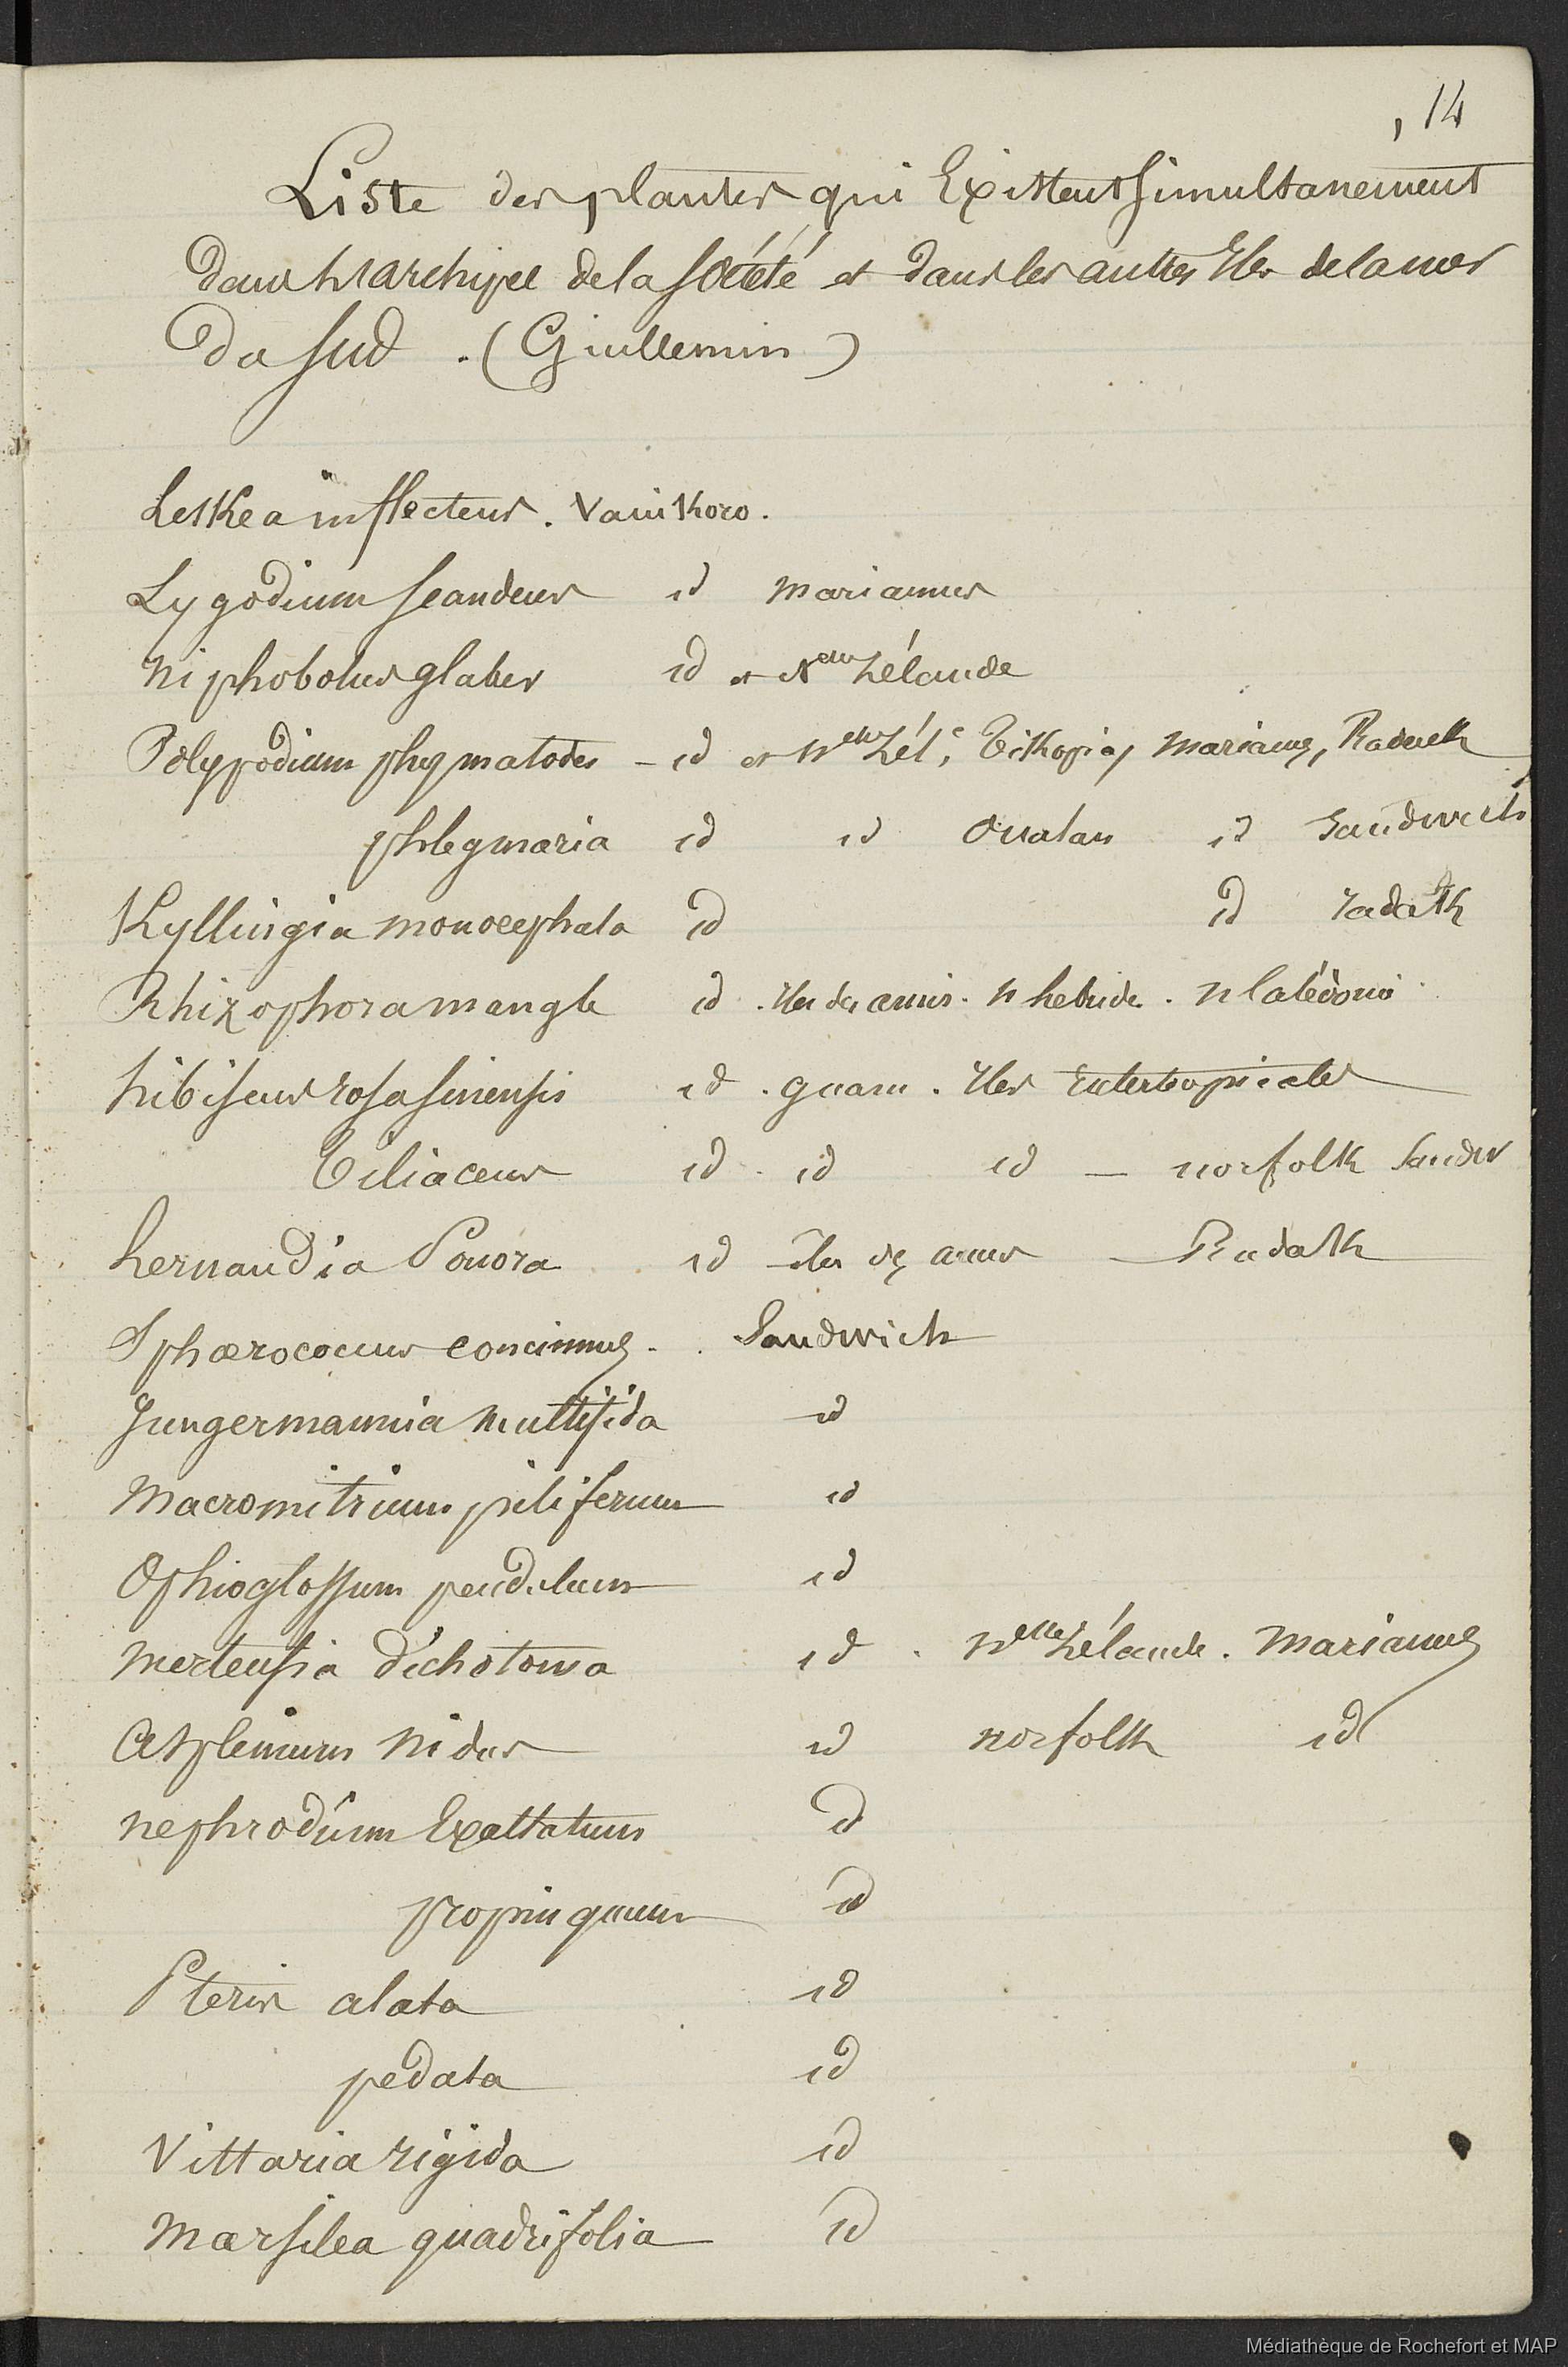 , 14
Liste des plantes qui Existent simultanement
dans l'archipel de la société et dans les autres Iles de la mer
du sud . (Guillemin)
Leskea inflectens . Vanikoro .
Lygodium scandens id mariannes
niphobolus glaber id et Nelle Zélande
Polypodium phymatodes - id et Nelle Zéle, Tikopia, mariannes, Radack
phlegmaria id id Oualan id Sandwich
Kyllingia monocephala id id radack
Rhizophora mangle id . Iles des amis . n hebride . n Calédonie .
hibiscus rosa sinensis id . guam . Iles Intertropicales
tiliaceus id . id id — norfolk Sandw
hernandia Sonora id iles des amis — Radak
Sphærococcus concinnus . . Sandwich
Jungermannia multifida id
Macromitrium piliferum id
Ophioglossum pendulum id
mertensia dichotoma id . Nelle Zélande . Mariannes
Asplenium nidus id norfolk id
nephrodium Exaltatum id
propinquum id
Pteris alata id
pedata id
Vittaria rigida id
Marsilea quadrifolia id
Médiathèque de Rochefort et MAP